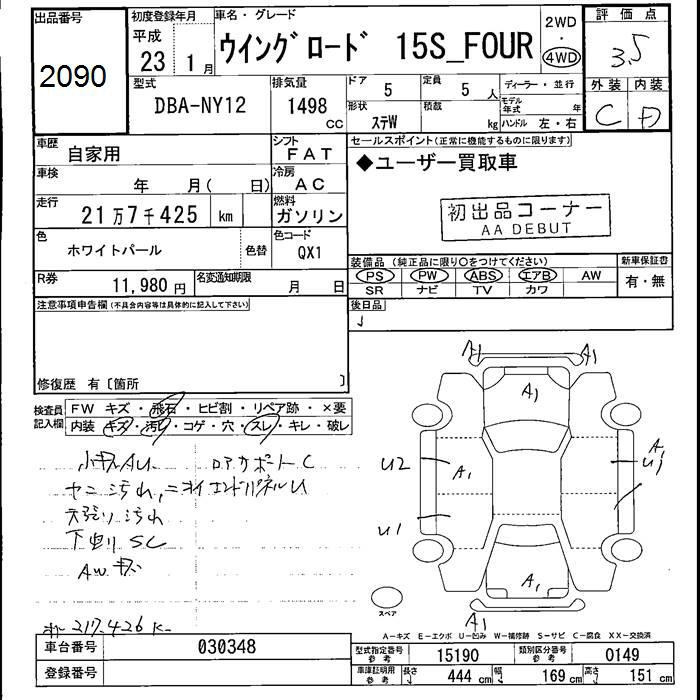 出品番号
2090
初度登録年月
平成
23 1月
車名・グレード
ウイングロード 15S_FOUR
2WD
・
4WD
評価点
3.5
型式
DBA-NY12
排気量
1498
CC
ドア
5
定員
5 人
形状
ステW
積載
kg
ディーラー・並行
モデル年式 年
ハンドル 左・右
外装 内装
C D
車歴
自家用
シフト
FAT
車検
年 月( 日)
冷房
AC
走行
21万7千425 km
燃料
ガソリン
色
ホワイトパール
色替
色コード
QX1
R券
11,980 円
名変通知期限
月 日
セールスポイント(正常に機能するものに限ります)
◆ユーザー買取車
初出品コーナー
AA DEBUT
装備品(純正品に限り○をつけてください)
新車保証書
PS PW ABS エアB AW
SR ナビ TV カワ
有・無
後日品
注意事項申告欄(不具合内容等は具体的に記入して下さい)
修復歴 有〔箇所 〕
検査員記入欄
FW キズ・飛石・ヒビ割・リペア跡・×要
内装 キズ・汚レ・コゲ・穴・スレ・キレ・破レ
小キズAU
コアサポートC
ヤニ汚れ,ニオイ
エンドパネルU
天張り汚れ
下回りSC
AWキズ
217,426K
A1
A1
A1
U2
A1
A1
U1
U1
A1
A1
スペア
A-キズ E-エクボ U-凹み W-補修跡 S-サビ C-腐食 XX-交換済
車台番号
030348
登録番号
型式指定番号
参考
15190
類別区分番号
参考
0149
車庫証明用
参考
長さ
444 cm
幅
169 cm
高さ
151 cm